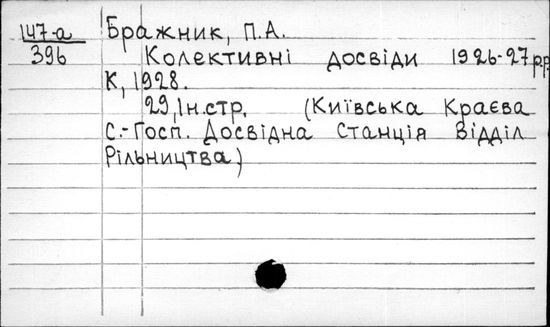 147-а
396
Бражник, П.А.
Колективні досвіди 1926-27р.р.
К, 1928.
29, Ін.стр. (Київська Краєва
С.-Госп. Досвідна Станція Відділ
Рільництва)